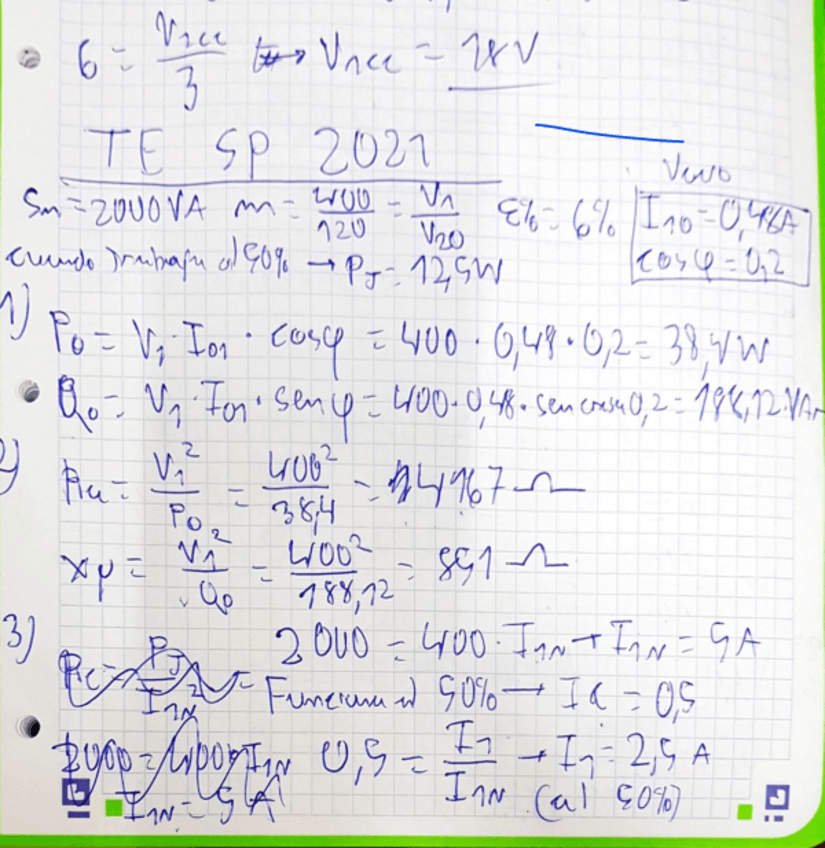 6 = V1cc / 3 → V1cc = 18V
TE SP 2021
Vacio
Sn = 2000 VA m = 400/120 = V1/V20 ε% = 6% I10 = 0,48A
cosφ = 0,2
cuando trabaja al 50% → PJ = 12,5W
1) P0 = V1 · I01 · cosφ = 400 · 0,48 · 0,2 = 38,4 W
Q0 = V1 · I01 · senφ = 400 · 0,48 · sen cos 0,2 = 188,12 VAr
2) Ru = V1² / P0 = 400² / 38,4 = 4167 Ω
Xμ = V1² / Q0 = 400² / 188,12 = 851 Ω
3) Rc = PJ / I1N² = 2000 = 400 · I1N → I1N = 5A
Funciona al 50% → Ic = 0,5
2000 = 400 · I1N 0,5 = I1 / I1N → I1 = 2,5 A
I1N = 5A (al 50%)